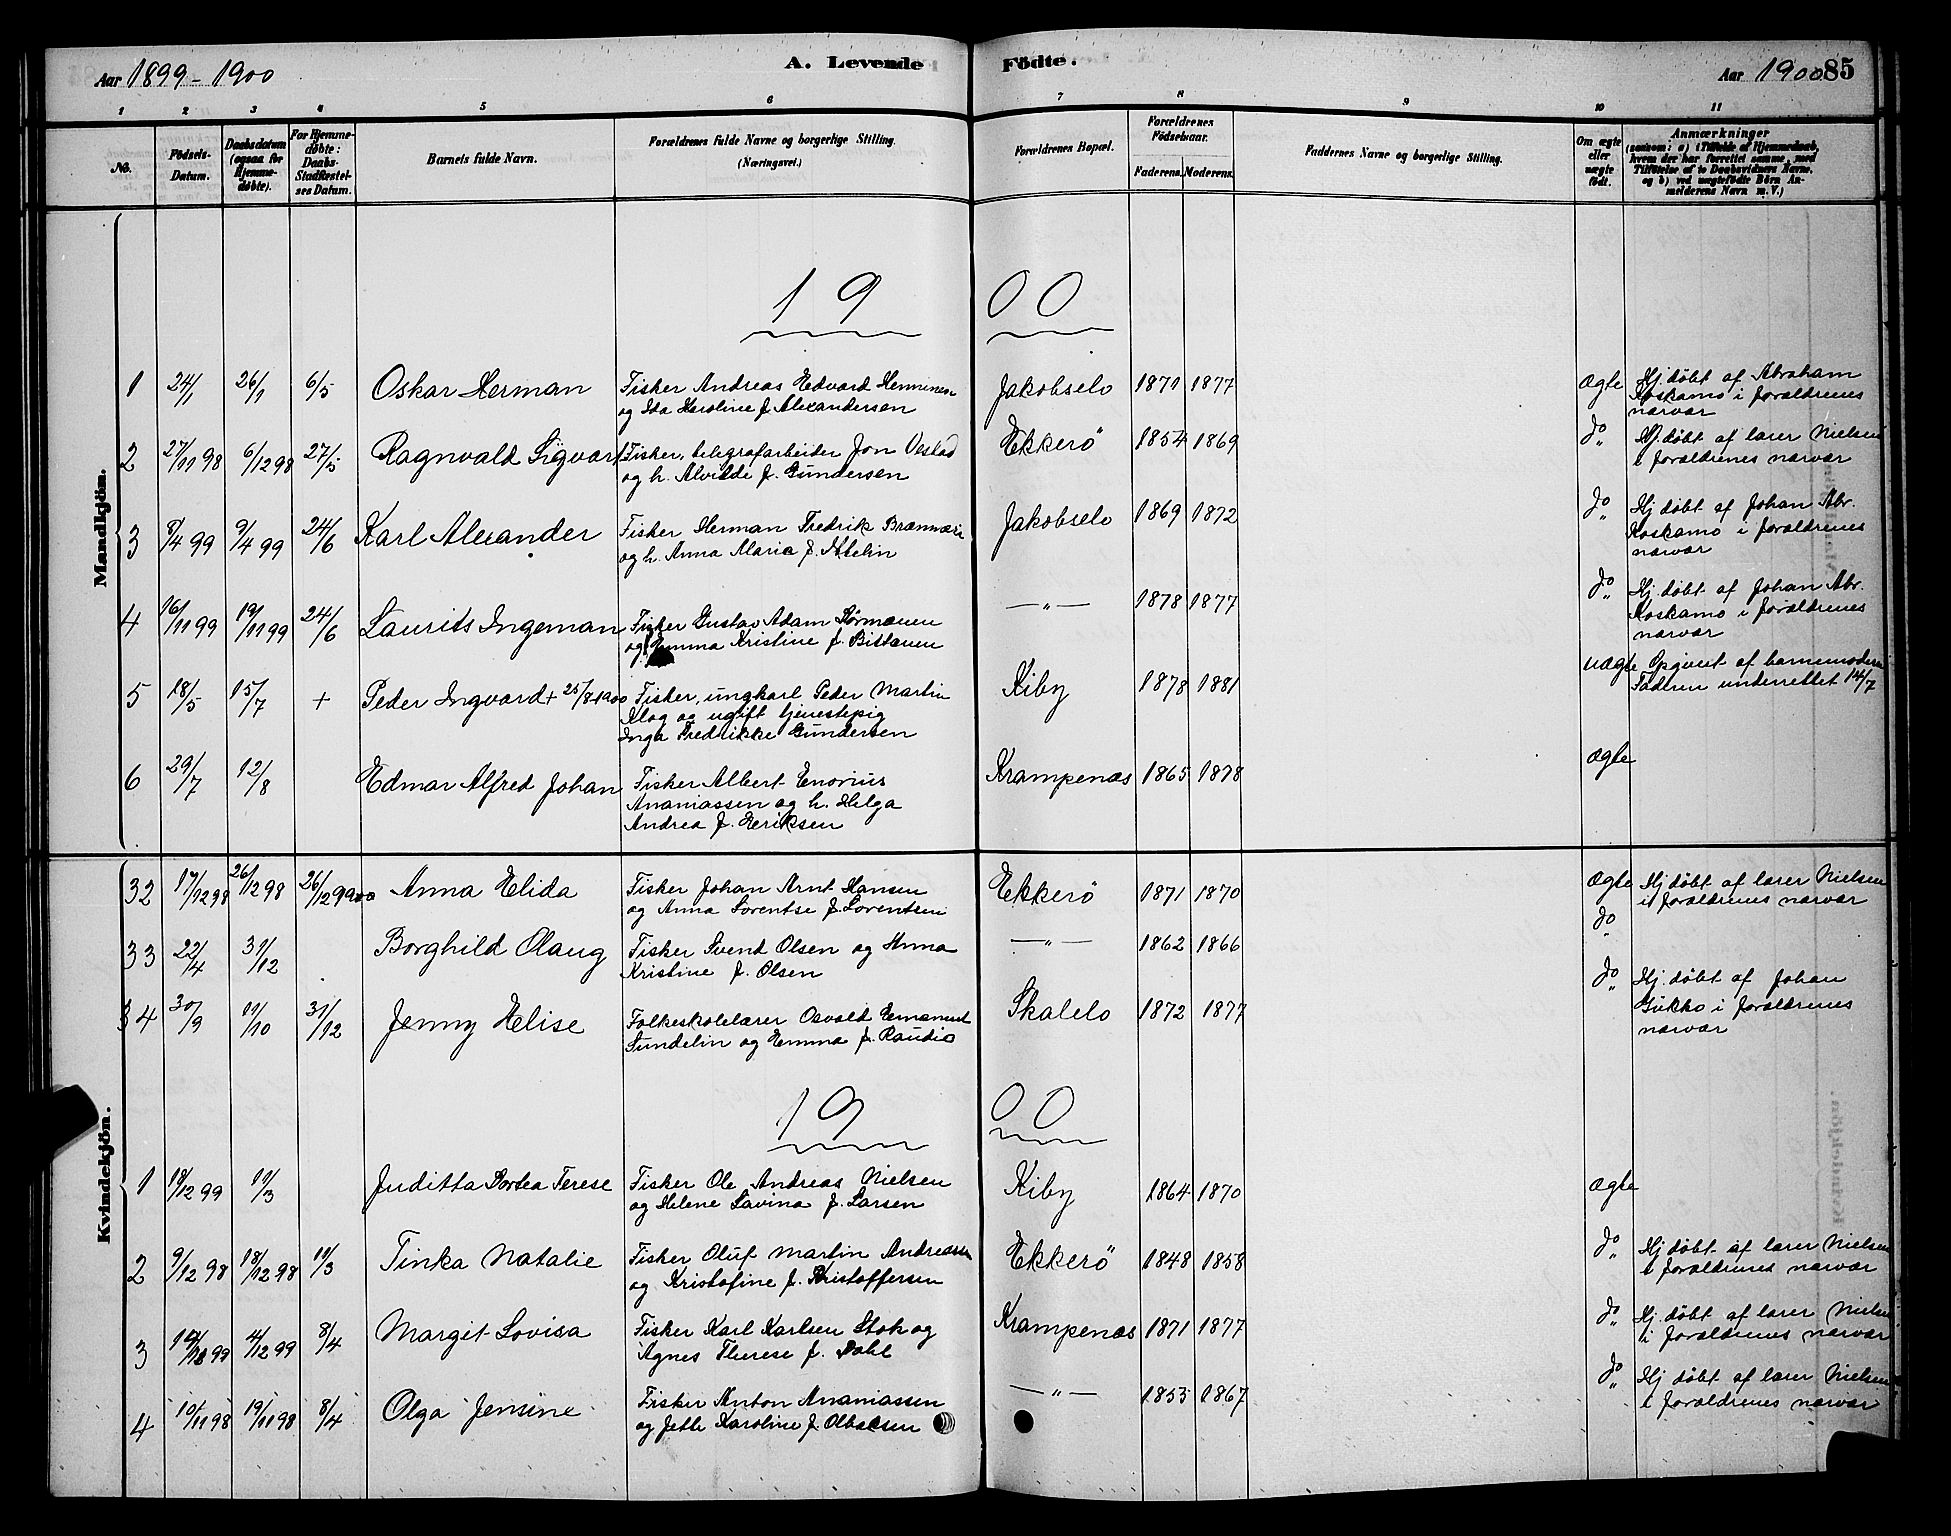 Aar 1899-1900
A. Levende
Fødte.
Aar 1900 85
1 2 3 4 5 6 7 8 9 10 11
No.
Fødsels-
Datum.
Daabsdatum
(ogsaa for
Hjemme-
døbte).
For Hjemme-
døbte:
Daabs-
Stadfæstel-
ses Datum.
Barnets fulde Navn.
Forældrenes fulde Navne og borgerlige Stilling.
(Næringsvei.)
Forældrenes Bopæl.
Forældrenes
Fødselsaar.
Faderens. Moderens.
Faddernes Navne og borgerlige Stilling.
Om ægte
eller
uægte
født.
Anmærkninger
(saasom: a) i Tilfælde af Hjemmedaab,
hvem der har forrettet samme, med
Tilføielse af to Daabsvidners Navne,
og b) ved uægtefødte Børn An-
melderens Navn m. V.)
Mandkjøn.
19 00
1 24/1 26/1 6/5 Oskar Herman Fisker Andreas Edvard Henninen Jakobselv 1871 1877 Ægte Hj. døbt af Abraham
og Ida Karoline f. Alexandersen Koskamo i forældrenes
nærvær
2 27/11 98 6/12 98 27/5 Ragnvald Sigvart Fisker, telegrafarbeider Jon Ekkerö 1854 1869 do Hj. døbt af lærer Nielsen
og h. Alvilde f. Gundersen i forældrenes nærvær
3 8/4 99 9/4 99 24/6 Karl Alexander Fisker Herman Fredrik Jakobselv 1869 1872 do Hj. døbt af Johan Abr.
og h. Anna Maria f. Koskamo i forældrenes
nærvær
4 16/11 99 19/11 99 24/6 Laurits Ingeman Fisker Gustav Adam — " — 1878 1877 do Hj. døbt af Johan Abr.
og Emma Kristine f. Koskamo i forældrenes
nærvær
5 18/5 15/7 + Peder Ingvard + 25/8 1900 Fisker, ungkarl Peder Martin Kiby 1878 1881 uægte Opgivet af barnemoderen
og ugift tjenestepig Faderen underrettet 14/7
Inga Fredrikke Gundersen
6 29/7 12/8 Edmar Alfred Johan Fisker Albert Enorius Krampenæs 1865 1878 Ægte
Ananiassen og h. Helga
Andrea f. Eeriksen
Kvindekjøn.
32 17/12 98 26/12 98 26/12 99 Anna Elida Fisker Johan Arnt Hansen Ekkerö 1871 1870 Ægte Hj. døbt af lærer Nielsen
og Anna Lorentse f. Lorentsen i forældrenes nærvær
33 22/4 31/12 Borghild Olaug Fisker Svend Olsen og Anna — " — 1862 1866 do
Kristine f. Olsen
34 30/9 11/10 31/12 Jenny Helise Folkeskolelærer Osvald Emanuel Skalelv 1872 1877 do Hj. døbt af Johan
Sundelin og Emma f. Raudio i forældrenes
nærvær
19 00
1 18/12 99 11/3 Juditta Dortea Terese Fisker Ole Andreas Nielsen Kiby 1864 1870 Ægte
og Helene Lavina f. Larsen
2 9/12 98 18/12 98 11/3 Tinka Natalie Fisker Oluf Martin Andreassen Ekkerö 1848 1858 do Hj. døbt af lærer Nielsen
og Kristofine f. Kristoffersen i forældrenes nærvær
3 4/12 99 8/4 Margit Lovisa Fisker Karl Karlsen Stok og Krampenæs 1871 1877 do Hj. døbt af lærer Nielsen
Agnes Therese f. Dahl i forældrenes nærvær
4 10/11 98 19/11 98 8/4 Olga Jensine Fisker Anton Ananiassen — " — 1853 1867 do Hj døbt af lærer Nielsen
og Jette Karoline f. Olbaesen i forældrenes nærvær